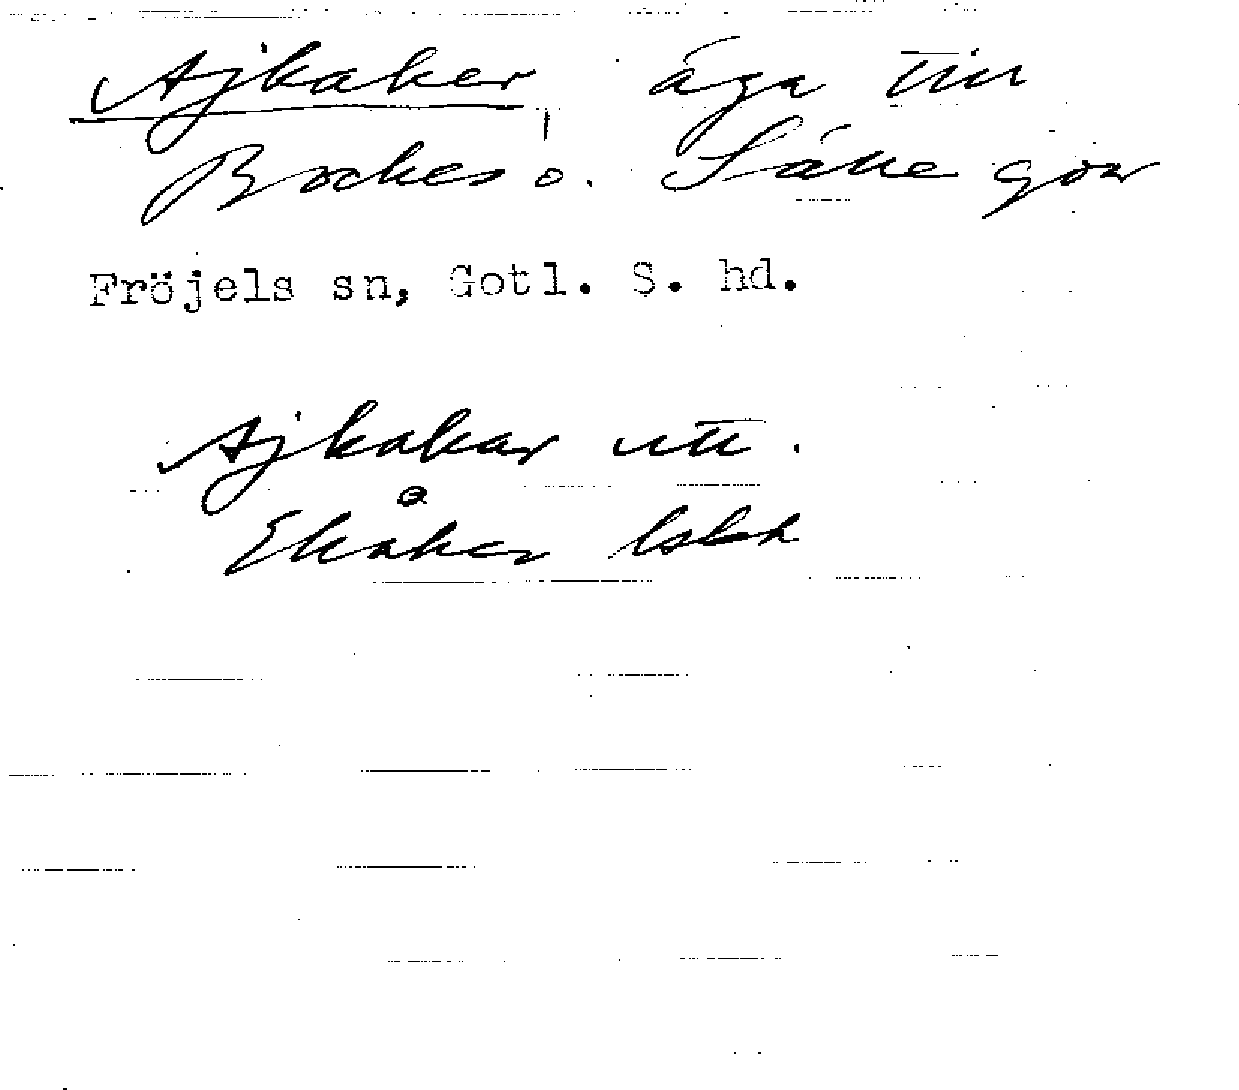 Ajkaker äga till
Bockes o. Säkegår
Fröjels sn, Gotl. S. hd.
Ajkakar utt.
Ekåker lsbk